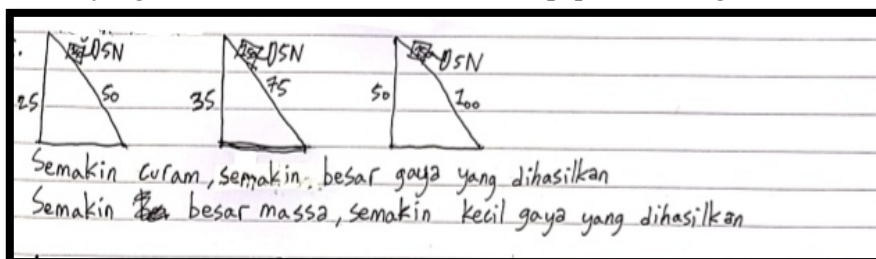 5N 5N 5N
25 50 35 75 50 100
Semakin curam, semakin besar gaya yang dihasilkan
Semakin besar massa, semakin kecil gaya yang dihasilkan